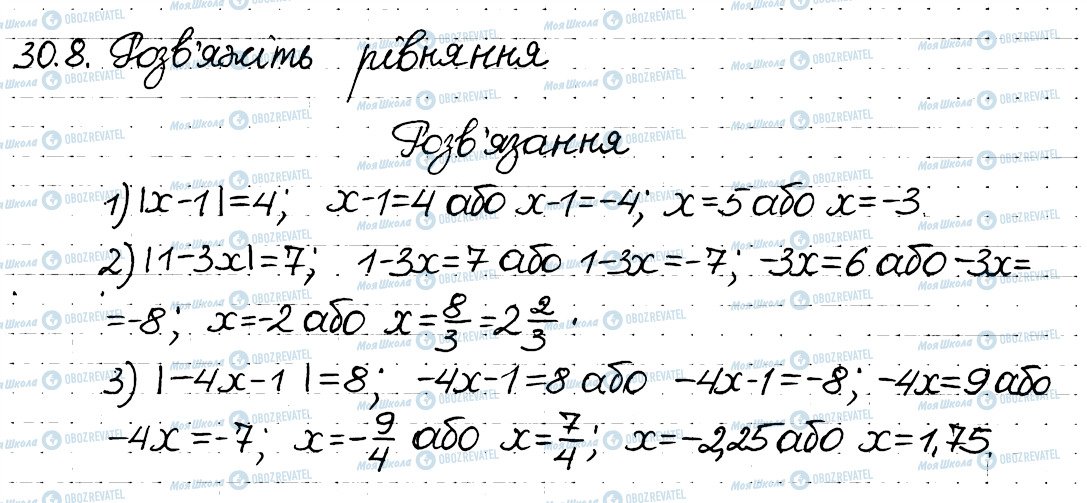 30.8. Розв'яжіть рівняння
Розв'язання
1) |x-1|=4; x-1=4 або x-1=-4; x=5 або x=-3.
2) |1-3x|=7; 1-3x=7 або 1-3x=-7; -3x=6 або -3x=
=-8; x=-2 або x=8/3=2 2/3.
3) |-4x-1|=8; -4x-1=8 або -4x-1=-8; -4x=9 або
-4x=-7; x=-9/4 або x=7/4; x=-2,25 або x=1,75.
МояШкола OBOZREVATEL